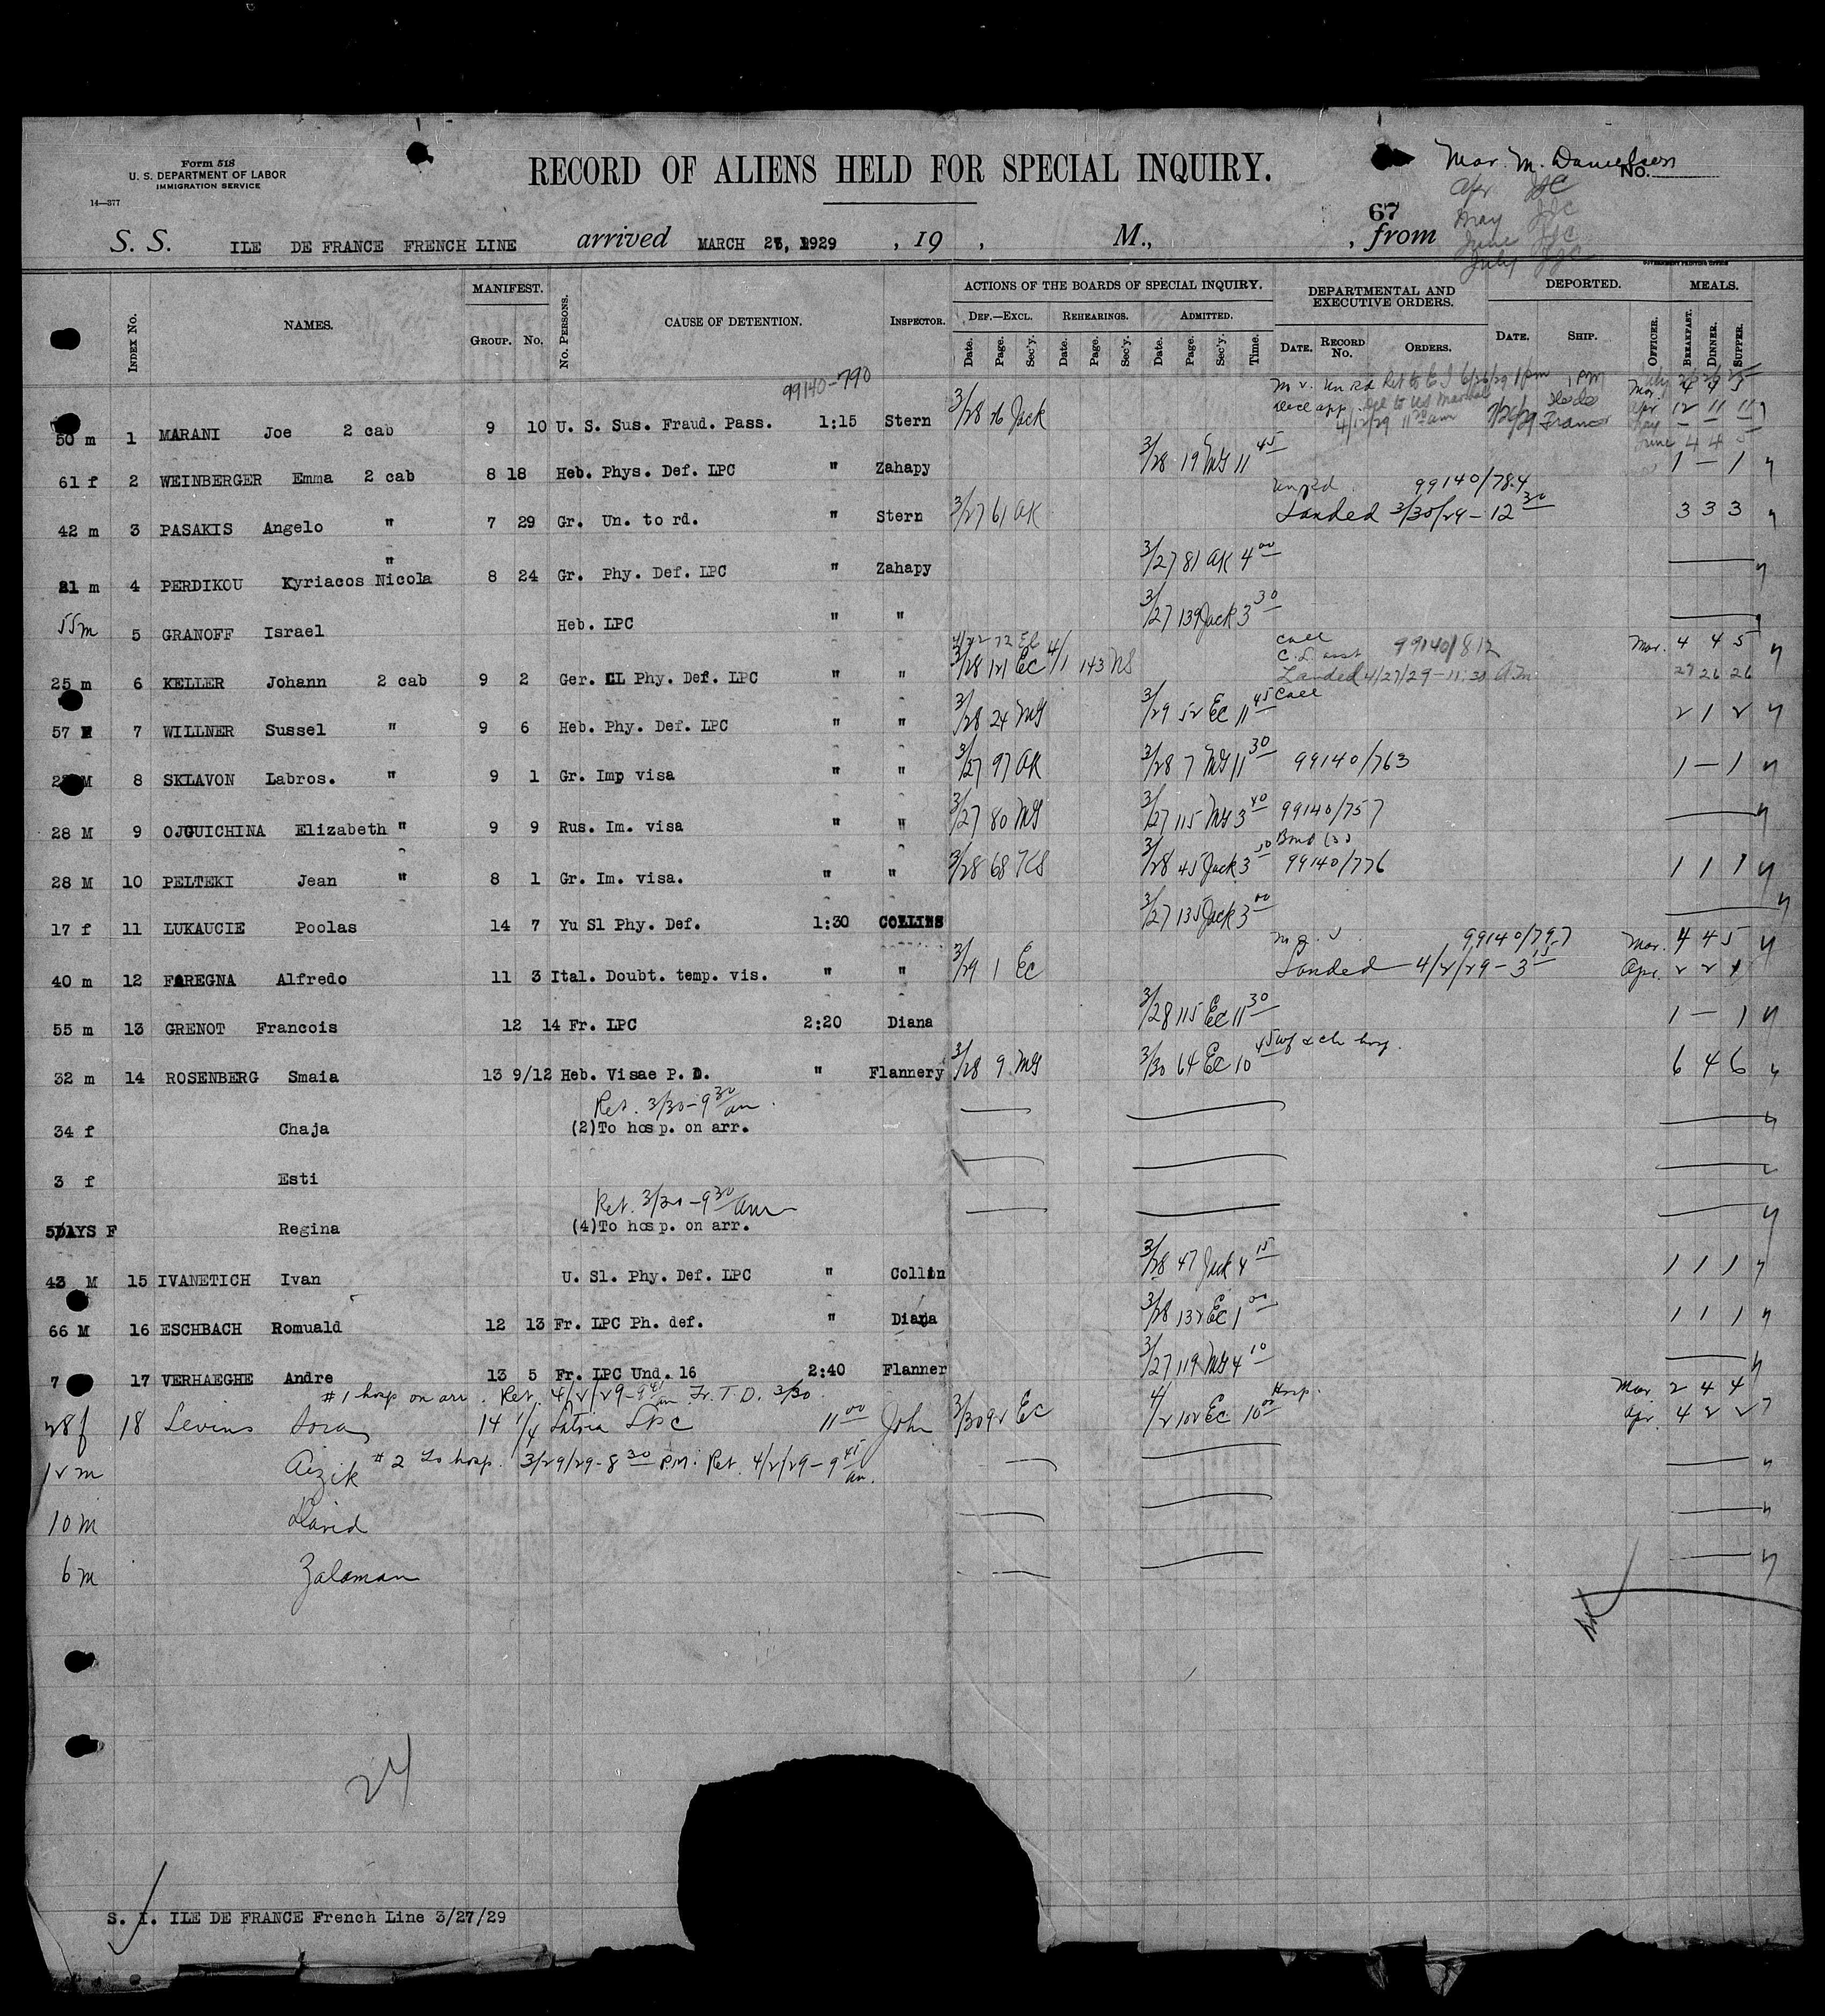 Form 518
U. S. DEPARTMENT OF LABOR
IMMIGRATION SERVICE
14—377
RECORD OF ALIENS HELD FOR SPECIAL INQUIRY.
Mar. M. Danielsen
No.
Apr JJC
May JJC
June JJC
July JJC
67
S. S. ILE DE FRANCE FRENCH LINE arrived MARCH 27, 1929 , 19 , M., , from
GOVERNMENT PRINTING OFFICE
INDEX NO. NAMES. MANIFEST. GROUP. NO. NO. PERSONS. CAUSE OF DETENTION. INSPECTOR.
ACTIONS OF THE BOARDS OF SPECIAL INQUIRY. DEF.—EXCL. Date. Page. Sec'y. REHEARINGS. Date. Page. Sec'y. ADMITTED. Date. Page. Sec'y. Time.
DEPARTMENTAL AND EXECUTIVE ORDERS. DATE. RECORD NO. ORDERS. DEPORTED. DATE. SHIP. OFFICER. MEALS. BREAKFAST. DINNER. SUPPER.
99140-790
50 m 1 MARANI Joe 2 cab 9 10 U. S. Sus. Fraud. Pass. 1:15 Stern 3/28 26 Jack
6/26/29 1 pm
Del to US Marshal
4/12/29 11 30 am
Mar. 4 4 5
Apr. 12 11 11
May — — —
June 4 4 5
61 f 2 WEINBERGER Emma 2 cab 8 18 Heb. Phys. Def. LPC " Zahapy 3/28 19 MG 11 45 1 — 1
42 m 3 PASAKIS Angelo " 7 29 Gr. Un. to rd. " Stern 3/27 61 AK Un rd 99140/784
Landed 3/30/29 – 12 30 3 3 3
21 m 4 PERDIKOU Kyriacos Nicola " 8 24 Gr. Phy. Def. LPC " Zahapy 3/27 81 AK 4 00
55 m 5 GRANOFF Israel Heb. LPC " " 3/27 139 Jack 3 30
25 m 6 KELLER Johann 2 cab 9 2 Ger. CL Phy. Def. LPC " " 3/28 121 EC 4/1 143 NS
99140/812
Landed 4/27/29 – 11:30 A.M. Mar. 4 4 5
27 26 26
57 F 7 WILLNER Sussel " 9 6 Heb. Phy. Def. LPC " " 3/28 24 MG 3/29 52 EC 11 45 2 1 2
M 8 SKLAVON Labros. " 9 1 Gr. Imp visa " " 3/27 97 AK 3/28 7 MG 11 30 99140/763 1 — 1
28 M 9 OJGUICHINA Elizabeth " 9 9 Rus. Im. visa " " 3/27 80 MG 3/27 115 MG 3 40 99140/757
28 M 10 PELTEKI Jean " 8 1 Gr. Im. visa. " " 3/28 68 KS 3/28 45 Jack 3 30 99140/776 1 1 1
17 f 11 LUKAUCIE Poolas 14 7 Yu Sl Phy. Def. 1:30 COLLINS 3/27 135 Jack 3 00
40 m 12 FAREGNA Alfredo 11 3 Ital. Doubt. temp. vis. " " 3/29 1 EC 99140/797
Landed 4/2/29 – 3 15 Mar. 4 4 5
Apr. 2 2 1
55 m 13 GRENOT Francois 12 14 Fr. LPC 2:20 Diana 3/28 115 EC 11 30 1 — 1
32 m 14 ROSENBERG Smaia 13 9/12 Heb. Visae P. D. " Flannery 3/28 9 MG 3/30 64 EC 10 45 wf & ch hosp. 6 4 6
Ret. 3/30 – 9 30 am.
34 f Chaja (2)To hosp. on arr.
3 f Esti
Ret. 3/30 – 9 30 am
DAYS F Regina (4)To hosp. on arr.
43 M 15 IVANETICH Ivan U. Sl. Phy. Def. LPC " Collin 3/28 47 Jack 4 15 1 1 1
66 M 16 ESCHBACH Romuald 12 13 Fr. LPC Ph. def. " Diana 3/28 132 EC 1 00 1 1 1
7 17 VERHAEGHE Andre 13 5 Fr. LPC Und. 16 2:40 Flanner 3/27 119 MG 4 10
#1 hosp on arr. Ret. 4/2/29 – 9 45 am Fr. T. D. 3/30
28 f 18 Levins Sora 14 1/4 Latvia LPC 11 00 John 3/30 92 EC 4/2 102 EC 10 00 Hosp. Mar 2 4 4
Apr. 4 2 2
12 m Aizik #2 To hosp. 3/29/29 – 8 30 P.M. Ret. 4/2/29 – 9 45 am.
10 m David
6 m Zalaman
24
S. I. ILE DE FRANCE French Line 3/27/29